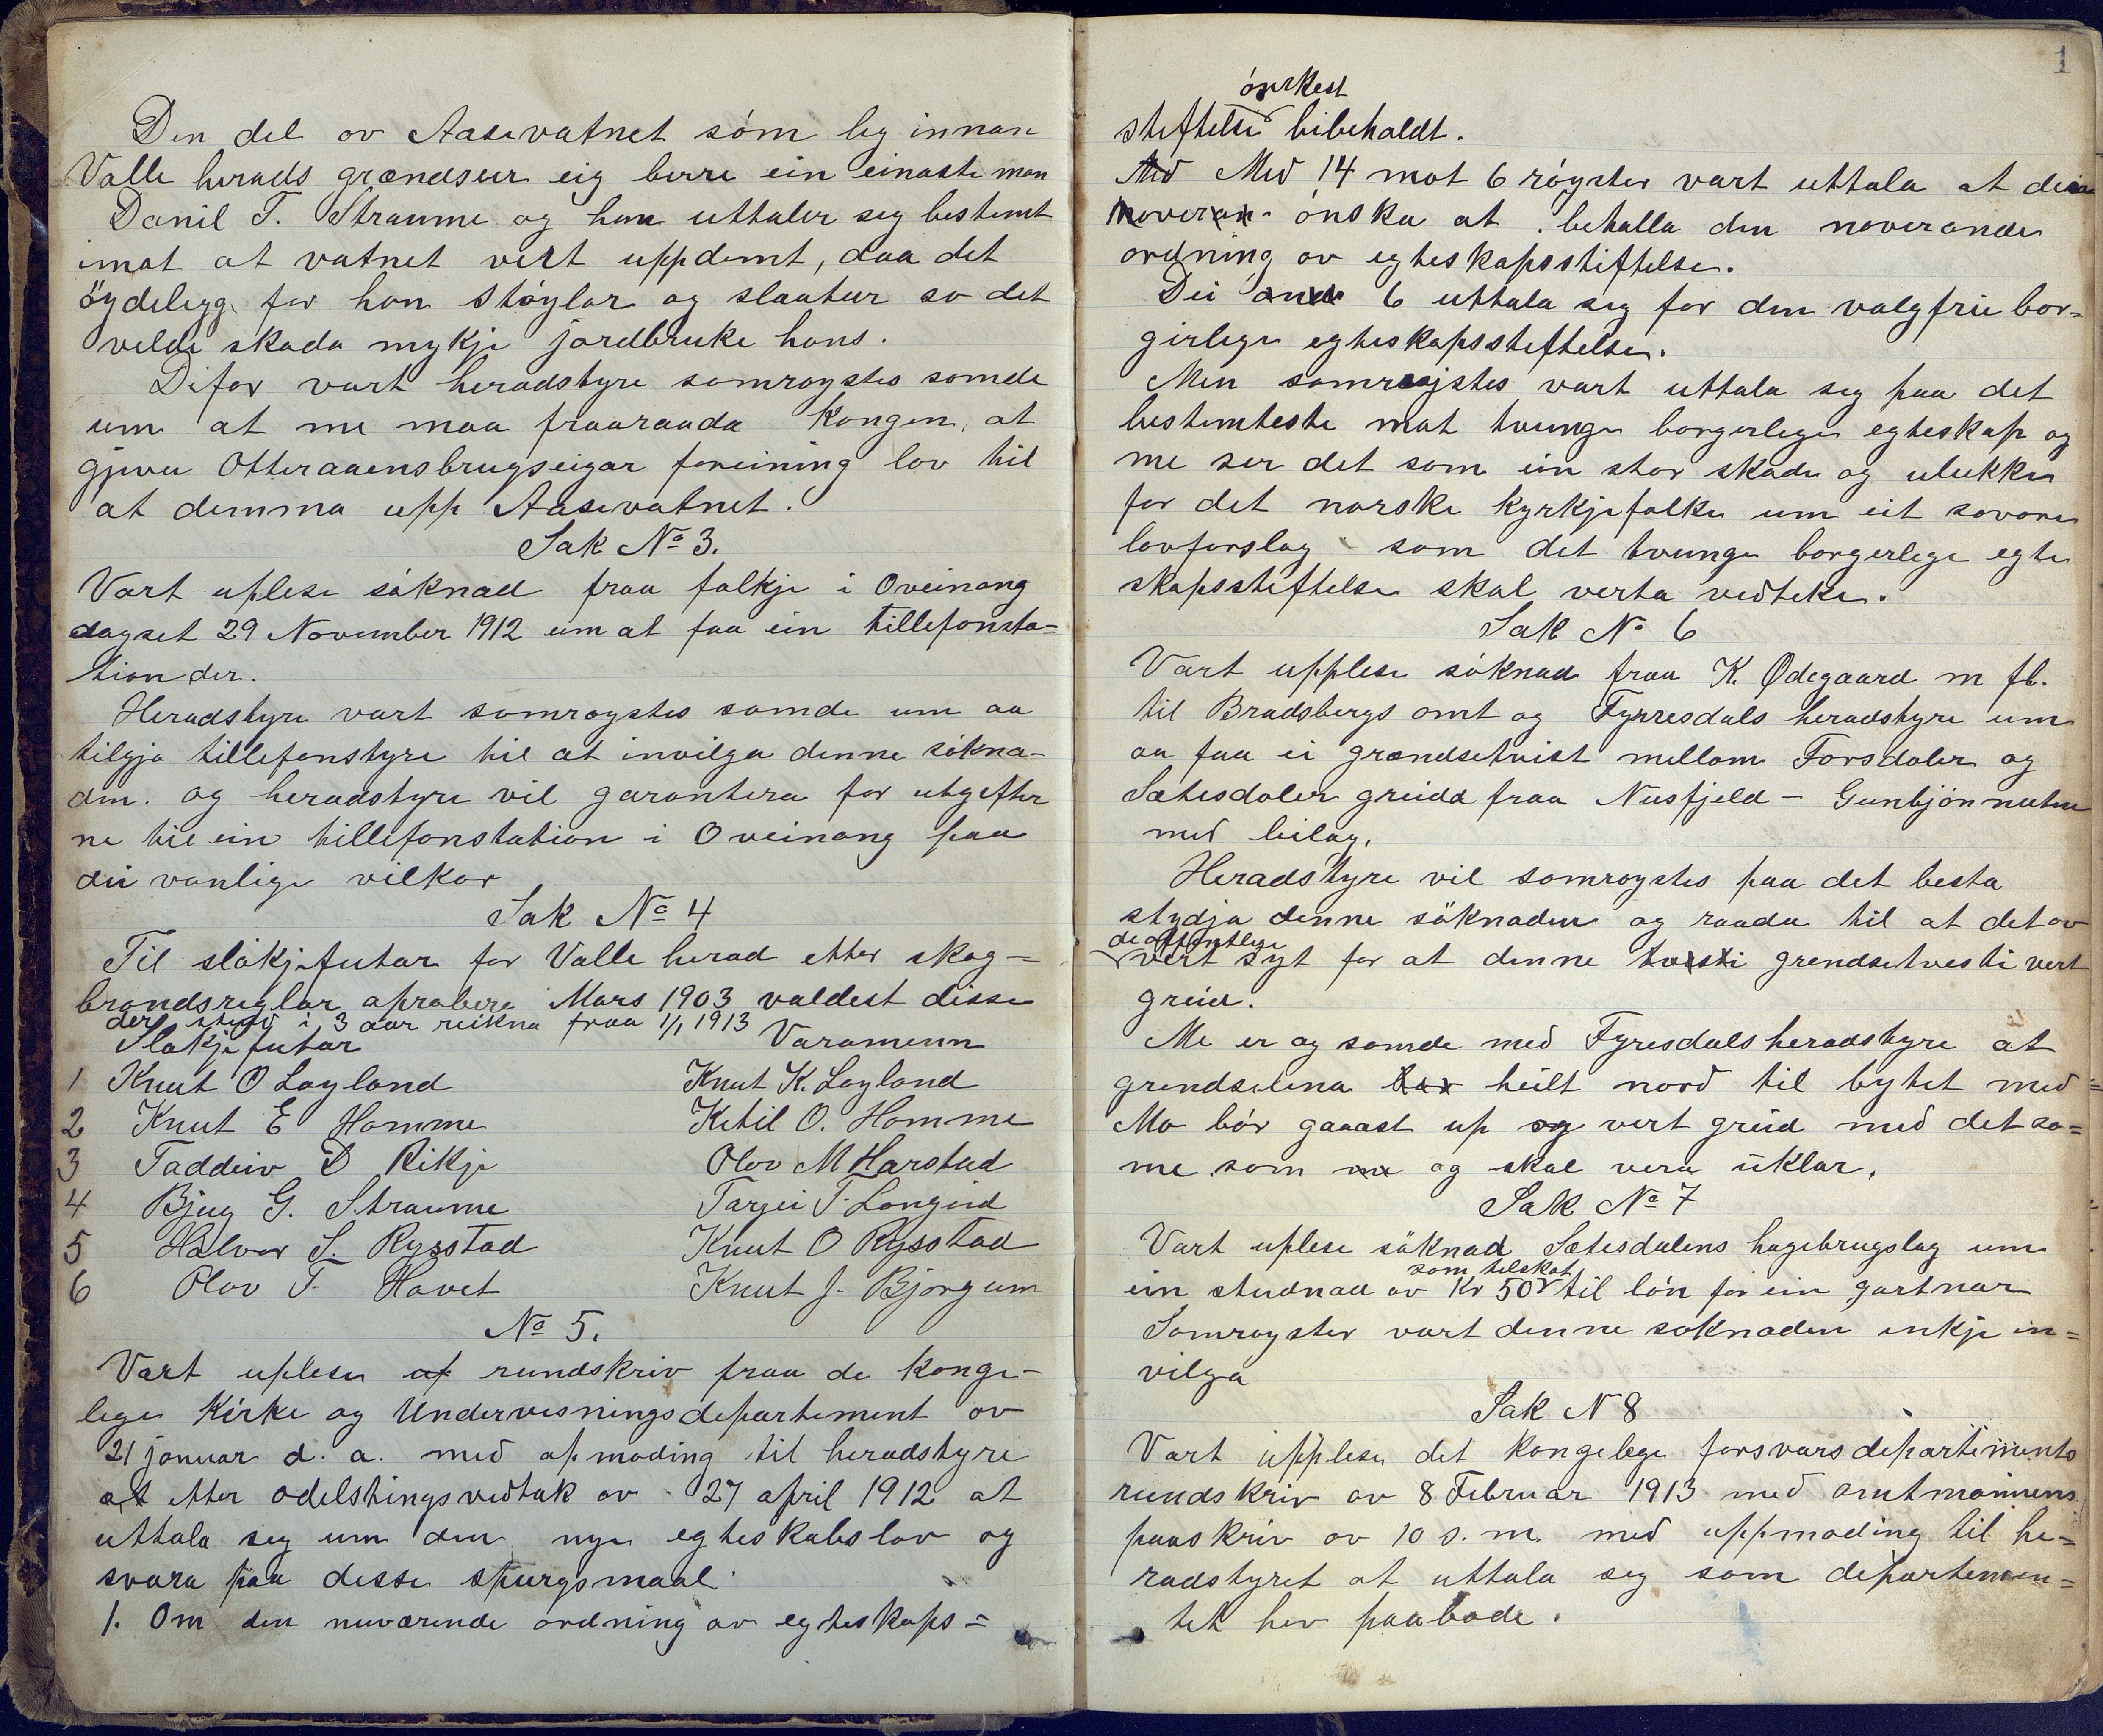 Den del ov Aasevatnet som lig innan
Valle herads grændseur eig berre ein einaste man
Danil T. Straume og han uttaler seg bestemt
imot at vatnet vert uppdemt, daa det
öydelegg for han stöylar og slaatur so det
velde skada mykje jordbruke hans.
Difor vart heradstyre samroystes samde
um at me maa fraaraada Kongen, at
gjeva Otteraaensbrugseigar foreining lov til
at demma upp Aasevatnet.
Sak No 3.
Vart uplese söknad fraa folkje i Oveinang
dagset 29 November 1912 um at faa ein tillefonsta=
tion der.
Heradstyre vart samroystes samde um aa
tilgja tillefonstyre til at invilga denne sökna-
den. og heradstyre vil garantera for utgifter
ne til ein tillefonstation i Oveinang paa
dei vanlige vilkor
Sak No 4
Til slökjefutar for Valle herad etter skog=
brandsreglar aprobere Mars 1903 valdest disse
der i 3 aar reikna fraa 1/1 1913
Slökjefutar Varamenn
1 Knut O Løyland Knut K. Løyland
2 Knut E Homme Ketil O. Homme
3 Taddeiv D Rikje Olov M Harstad
4 Bjug G. Straume Tarjei T. Longeid
5 Halvor S. Rysstad Knut O Rysstad
6 Olov T. Hovet Knut J. Bjørgum
No 5.
Vart uplese af rundskriv fraa de konge-
lege Kirke og Undervisningsdepartement ov
21 januar d. a. med opmoding til heradstyre
at etter odelstingsvedtak ov 27 april 1912 at
uttala seg um den nye egteskabslov og
svara paa desse spurgsmaal.
1. Om den nuværende ordning av egteskaps=
1
önskest
stiftelse bibeholdt.
Med Med 14 mot 6 röyster vart uttala at dei
noveran- önska at behalla den noverande
ordning ov egteskapsstiftelse.
Dei andr 6 uttala seg for den valgfrie bor=
gerlege egteskapsstiftelse.
Men samroystes vart uttala seg paa det
bestemteste mot tvunge borgerlege egteskap og
me ser det som ein stor skade og ulukke
for det norske kyrkjefolke um eit sovore
lovforslag som det tvunge borgerlege egte
skapsstiftelse skal verta vedteke.
Sak No 6
Vart upplese söknad fraa K. Ødegaard m fl.
til Bradsbergs amt og Fyrresdals heradstyre um
aa faa ei grændsetvist mellom Forsdaler og
Sætesdaler greidd fraa Nusfjeld - Gunbjönnuten
med bilag.
Heradstyre vil samroystes paa det besta
stydja denne söknaden og raada til at det ov
de offentlege
vert syt for at denne tvisti grendsetvesti vert
greid.
Me er og samde med Fyresdals heradstyre at
grendselina bør heilt nord til bytet med=
Mo bör gaaast up og vert greid med det sa=
me som me og skal vera uklar.
Sak No 7
Vart uplese söknad Sætesdalens hagebrugslag um
som telskot
ein studnad ov Kr 50 til lön for ein gartnar
Samroyster vart denne soknaden inkje in=
vilga
Sak N 8
Vart upplese det Kongelege forsvarsdepartiments
rundskriv ov 8 Februar 1913 med amtmannens
paaskriv ov 10 s. m. med uppmoding til he=
radstyret at uttala seg som departemen=
tet hev paabode.